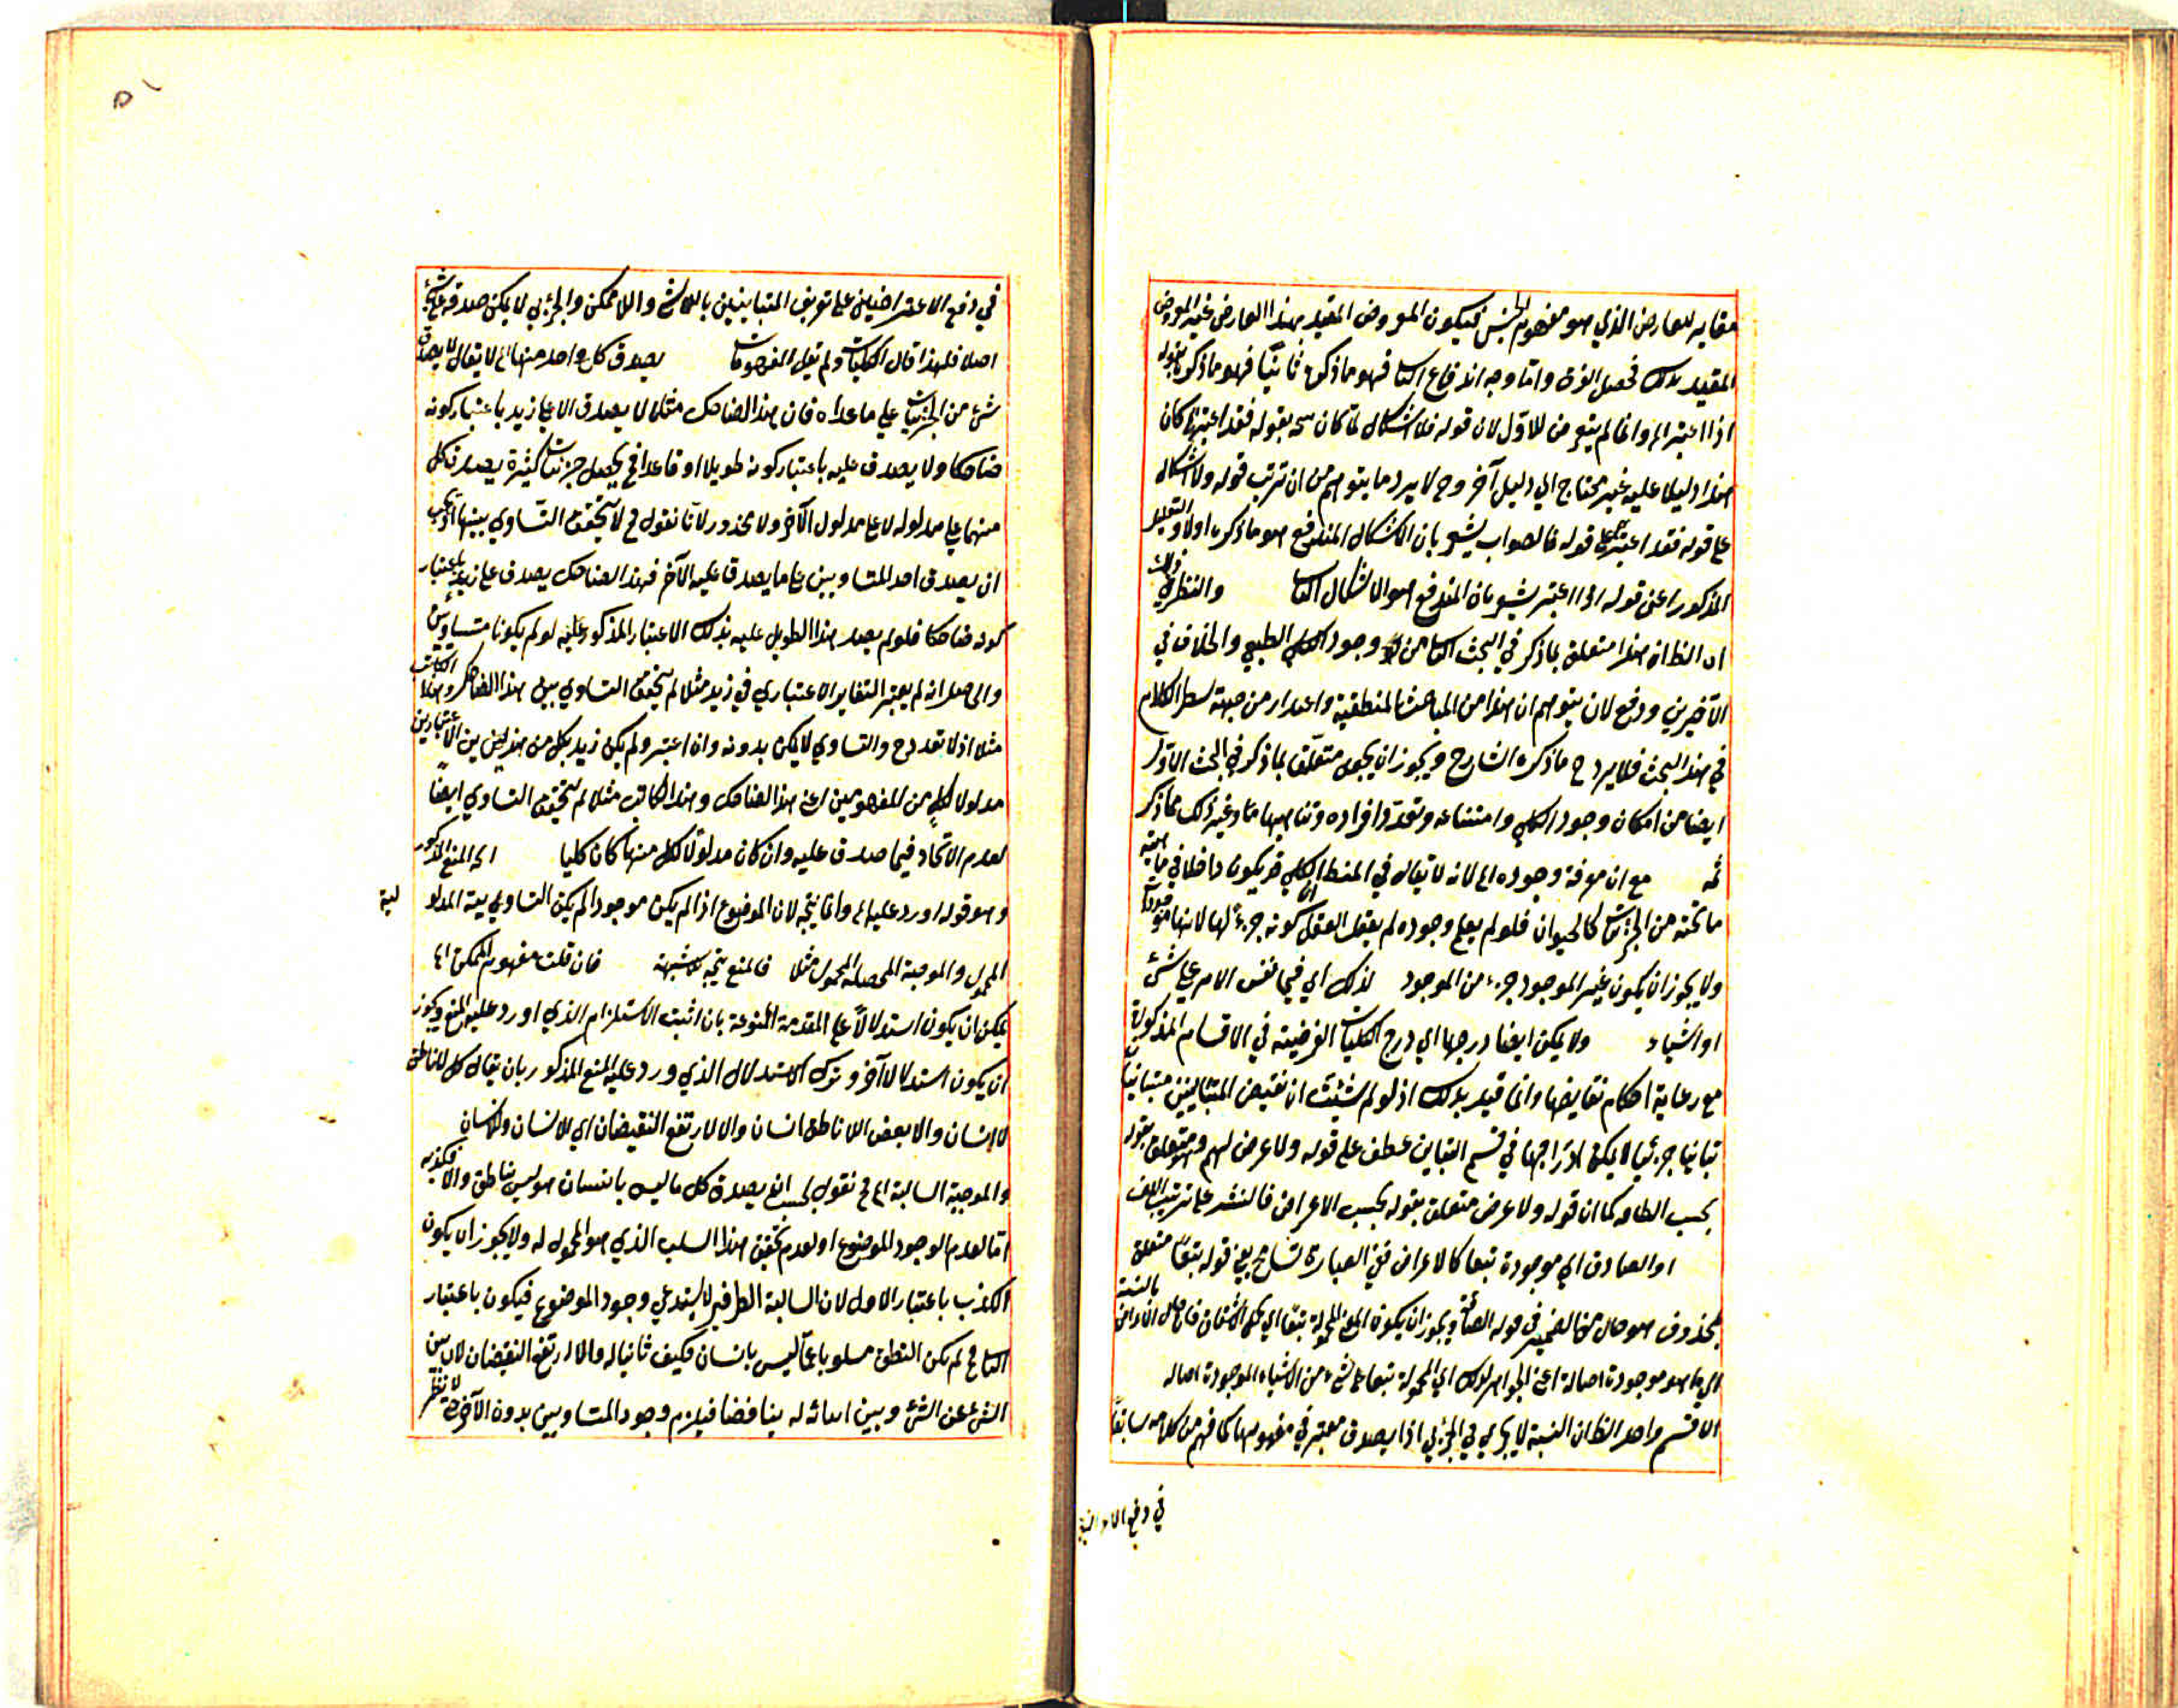 مقابه للعارض الذي هو مفهوم الجنس فيكون المعروض المقيد بهذا العارض غير المعروض
المقيد بذلك فحصل الفرق واما وجه اندفاع الثا فهو ما ذكره ثانيا فهو ما ذكره بقوله
اذا اعتبر الخ وانما لم يتعرض للاول لان قوله فلا اشكال لما كان بقوله فقد اعتبرها كان
هذا دليلا عليه غير محتاج الي دليل آخر وح لا يرد ما يتوهم من ان ترتب قوله ولا اشكال
على قوله فقد اعتبرها قوله فالصواب يشعر بان الاشكال المندفع هو ما ذكره اولا والتعليل
المذكور اعنى قوله اذا اعتبر يشعر بان المندفع هو الاشكال الثا والنظر في ذلك
اه الظ ان هذا متعلق بما ذكر في البحث الثا من وجود الكلي الطبيعي والخلاف في
الآخرين ودفع لان يتوهم ان هذا من المباحث المنطقية واعتذار من جهة بسط الكلام
في هذا البحث فلا يرد ح ما ذكره الشارح ويجوز ان يجعل متعلقا بما ذكر في البحث الاول
ايضا من امكان وجود الكلي وامتناعه وتعدد افراده وتناهيها وغير ذلك مما ذكر
ثمه مع ان معرفة وجوده الخ لانه لا يقال في المنط الكلي قد يكون داخلا في ماهية
ما تحته من الجزئيات كالحيوان فلو لم يعلم وجوده لم يقبل العقل كونه جزءا لها لانها موجودة
ولا يجوز ان يكون غير الموجود جزء من الموجود لذلك اي فيما نفس الامر علي شئ
او اشياء ولا يمكن ايضا درجها اي درج الكليات الفرضية في الاقسام المذكورة
مع رعاية احكام نقايضها وانما قيد بذلك اذ لو لم يثبت ان نقيض المتباينين متباينان
تباينا جزئيا لا يمكن ادراجها في قسم التباين عطف على قوله ولا عرض لهم وهو متعلق بقوله
بحسب الظاهر كما ان قوله ولا عرض متعلق بقوله بحسب الاعراض فالنشر على ترتيب اللف
او الصادق اي موجودة تبعا كالاعراض ففي العبارة تسامح يعني قوله تبعا متعلق
بمحذوف هو حال من الضمير في قوله ويجوز ان يكون المحمولة تبعا اي
اي ما هو موجودة اصالة اعني الجواهر لذلك اي المحمولة تبعا على شئ من الاشياء الموجودة اصاله
الا قسم واحد الظ ان النسبة لا يجري في الجزئي اذا يصدق معتبر في مفهومها كما فهم من كلامه سابقا
في دفع الاعتراضين
في دفع الاعتراضين على تعريف المتباينين باللاشئ واللاممكن والجزئي لا يمكن صدقه على شئ
اصلا فلهذا قال الكليات ولم يقل المفهومات يصدق كل واحد منها الخ لا يقال لا يصدق
شئ من الجزئيات علي ما عداه فان هذا الضاحك مثلا لا يصدق الا علي زيد باعتبار كونه
ضاحكا ولا يصدق عليه باعتبار كونه طويلا او قاعدا فح يحصل جزئيات كثيرة يصدق كل
منهما علي مدلوله لا على مدلول الآخر ولا محذور لانا نقول فح لا يتحقق التساوي بينها اذ يجب
ان يصدق احد المتساويين على ما يصدق عليه الآخر فهذا الضاحك يصدق على زيد باعتبار
كونه ضاحكا فلو لم يصدق هذا الطويل عليه بذلك الاعتبار المذكور عليه لو لم يكونا متساويين
والحاصل انه لم يعتبر التغاير الاعتباري في زيد مثلا لم يتحقق التساوي بين هذا الضاحك وهذا الكاتب
مثلا اذ لا تعدد ح والتساوي لا يمكن بدونه وان اعتبر ولم يكن زيد بكل من هذين الاعتبارين
مدلولا لكل من المفهومين اعني هذا الضاحك وهذا الكاتب مثلا لم يتحقق التساوي ايضا
لعدم الاتحاد فيما صدق عليه وان كان مدلولا لكل منها كان كليا اي المنع المذكور
وهو قوله اورد عليه الخ وانما يتجه لان الموضوع اذا لم يكن موجودا لم يكن التساوي بينه المدلو
لية
المحمول والموجبة المحصلة المحمول مثلا فالمنع يتجه بلا شبهة فان قلت مفهوم الممكن الخ
يمكن ان يكون استدلالا على المقدمة الممنوعة بان اثبت الاستلزام الذي اورد عليه المنع ويجوز
ان يكون استدلالا آخر وترك الاستدلال الذي ورد عليه المنع المذكور بان يقال كل لا ناطق
لا انسان والا بعض اللا ناطق انسان والا لارتفع النقيضان اي للانسان والانسان
والموجبة السالبة الخ نقول يصدق كل ما ليس بانسان هو ليس بناطق والا فكذبه
اما لعدم الوجود الموضوع او لعدم تحقق هذا السلب الذي هو المحمول له ولا يجوز ان يكون
الكذب باعتبار الاول لان السالبة الطرفين لا يستدعي وجود الموضوع فيكون باعتبار
الثا فح لم يكن النطق مسلوبا عما ليس بانسان فيكون ثابتا له والا لارتفع النقيضان لان بين
الشئ عن الشئ وبين اثباته له يناقضا فيلزم وجود المتساويين بدون الآخر لا نظر